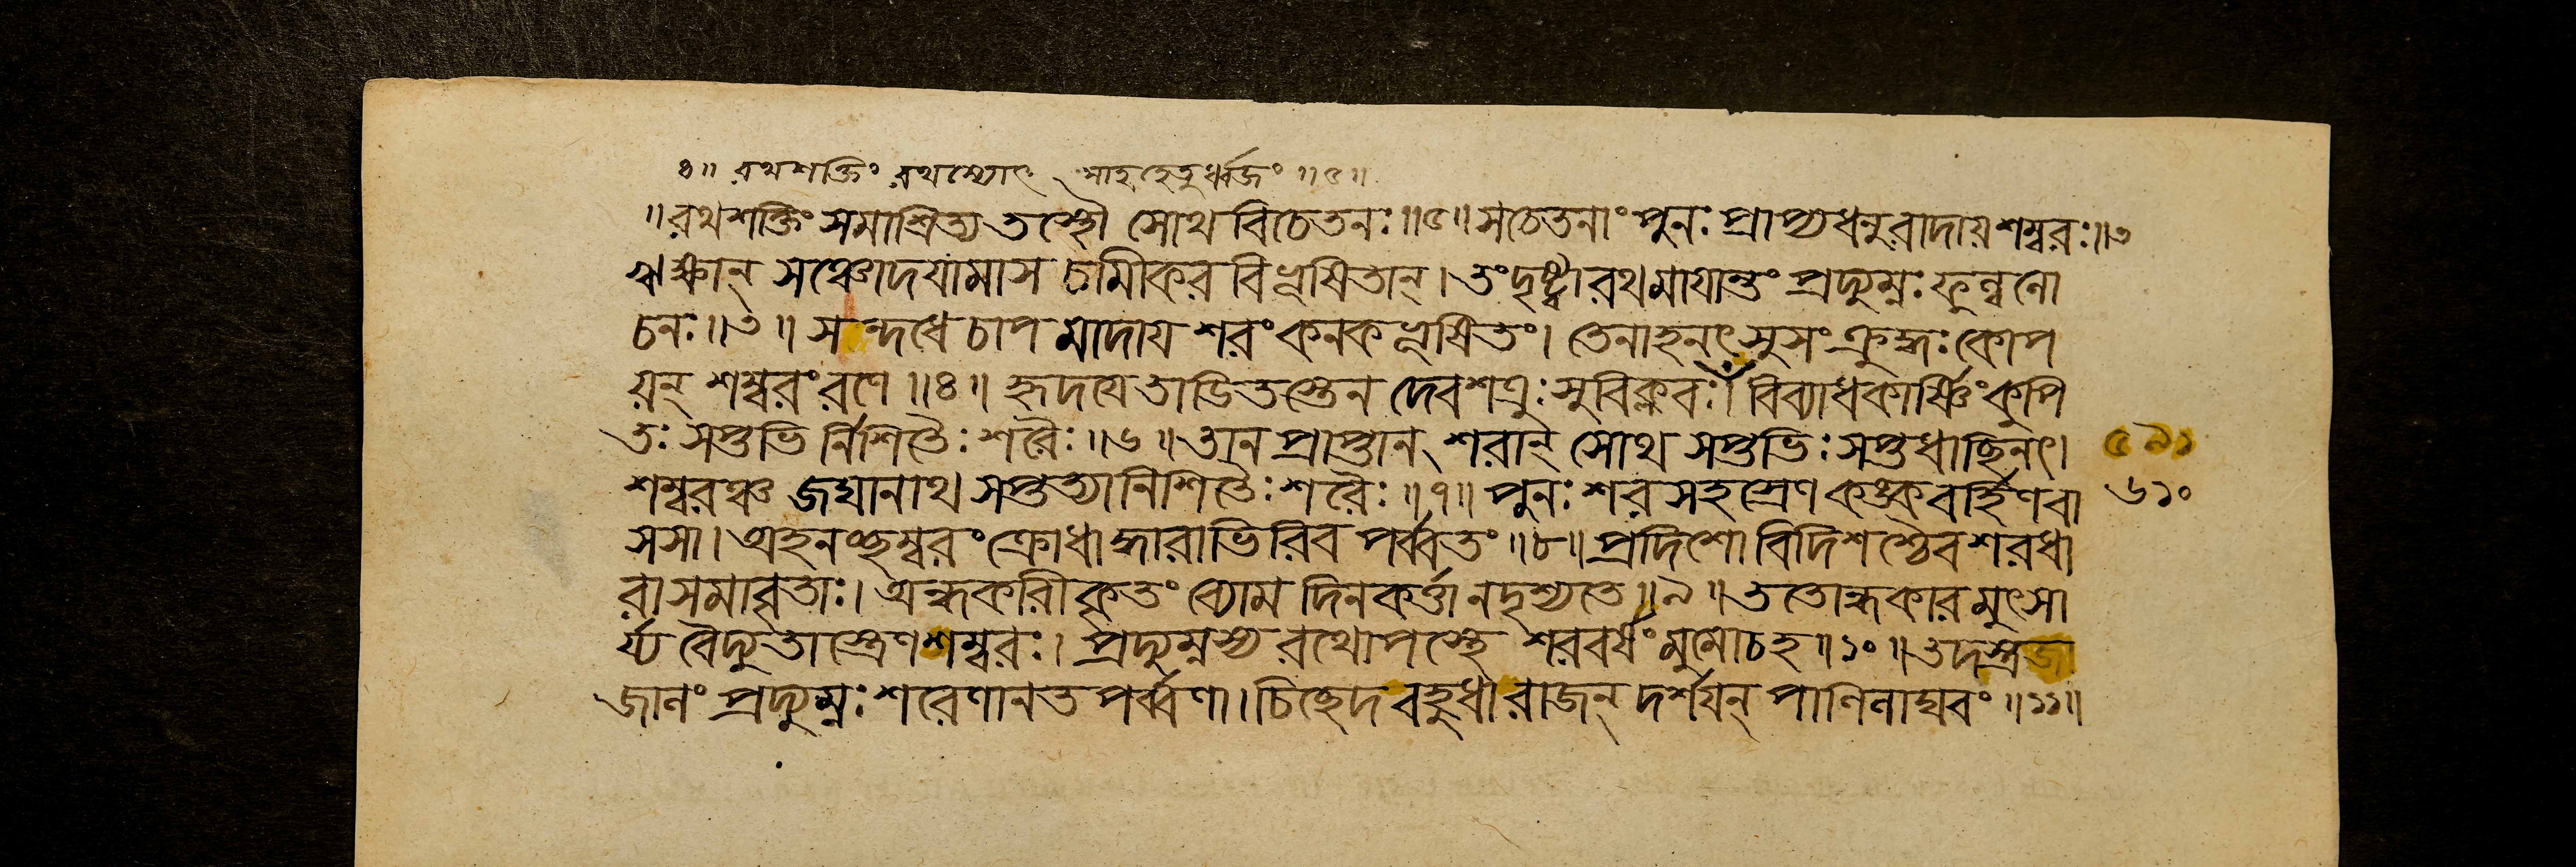 ৪॥ রথশক্তিং রথস্থোৎ সাহহেতুর্ধ্বজং ॥৫॥
॥রথশক্তিং সমাশ্রিত্য তস্থৌ সোথ বিচেতনঃ॥৫॥সচেতনাং পুনঃ প্রাপ্য ধনুরাদায় শম্বরঃ॥৩
সঞ্চোদয়ামাস চামীকর বিভূষিতান্। তং দৃষ্ট্বা রথমায়ান্তং প্রদ্যুম্নঃ ফুল্বনো
চনঃ॥৩॥ সন্দধে চাপমাদায় শরং কনকভূষিতং। তেনাহনৎ সুসংক্রুদ্ধঃ কোপ
য়ন্ শম্বরং রণে ॥৪॥ হৃদয়ে তাডিতস্তেন দেবশত্রুঃ সুবিক্লবঃ। বিব্যাধ কার্ষ্ণিং কুপি
তঃ সপ্তভি র্নিশিতৈঃ শরৈঃ॥৬॥তান প্রাপ্তান্ শরান্ সোথ সপ্তভিঃ সপ্তধাছিনৎ। ৫৯১
শম্বরঞ্চ জঘানাথ সপ্তত্যা নিশিতৈঃ শরৈঃ॥৭॥ পুনঃ শরসহস্রেণ কঙ্কবর্হিণবা ৬১০
সসা। অহনচ্ছম্বরং ক্রোধাদ্ধারাভিরিব পর্ব্বতং॥৮॥ প্রদিশো বিদিশশ্চৈব শরধা
রাসমাবৃতাঃ। অন্ধকরীকৃতং ব্যোম দিনকর্ত্তা নদৃশ্যতে॥৯॥ ততোন্ধকারমুৎসা
র্য্য বৈদ্যুতাস্ত্রেণ শম্বরঃ। প্রদ্যুম্নস্য রথোপস্থে শরবর্ষং মুমোচহ॥১০॥তদস্ত্রজা
জানং প্রদ্যুম্নঃ শরেণানত পর্ব্বণা। চিচ্ছেদ বহুধা রাজন্ দর্শয়ন্ পাণিনাঘবং॥১১॥